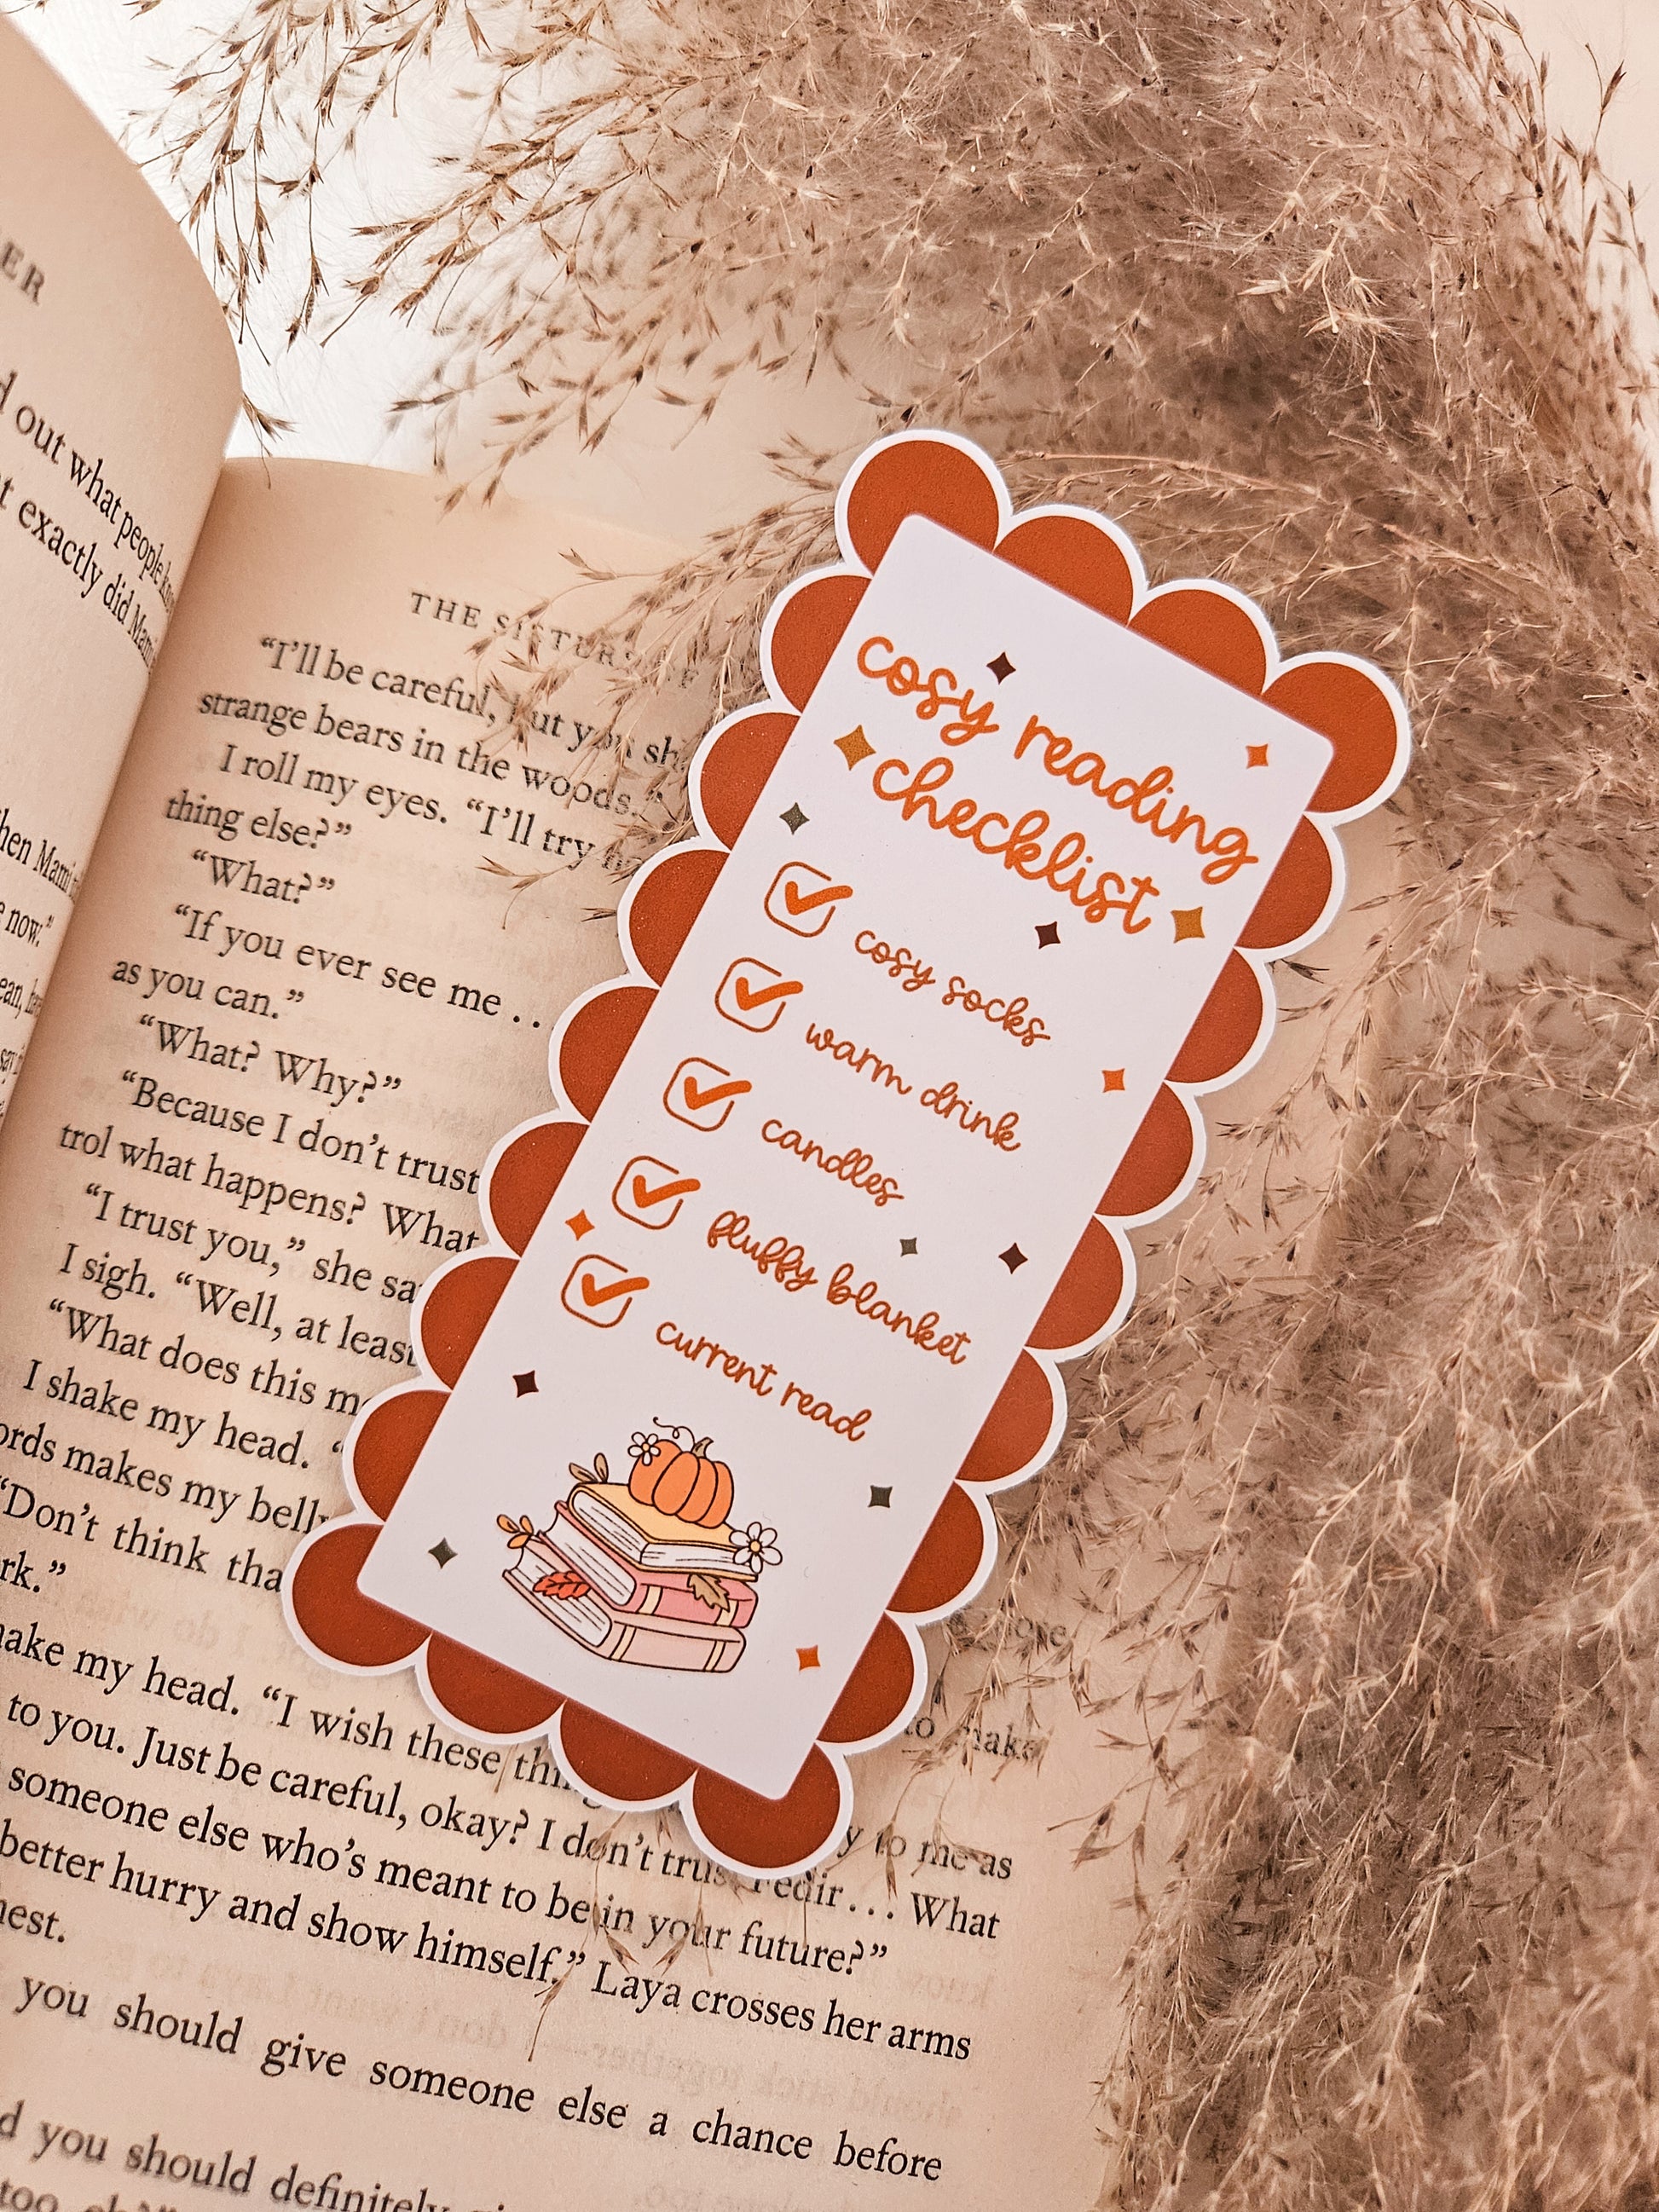 ER
d out what people
t exactly did Mami
hen Mami
e now.”
ean,
say
THE SISTERS OF
“I’ll be careful, but you sh
strange bears in the woods.”
I roll my eyes. “I’ll try
thing else?”
“What?”
“If you ever see me . .
as you can.”
“What? Why?”
“Because I don’t trust
trol what happens? What
“I trust you,” she sa
I sigh. “Well, at least
“What does this m
I shake my head. “
ords makes my belly
“Don’t think tha
rk.”
ake my head. “I wish these thing
to make
to you. Just be careful, okay? I don’t trust Fedir . . . What
y to me as
someone else who’s meant to be in your future?”
better hurry and show himself.” Laya crosses her arms
nest.
you should give someone else a chance before
d you should definitely
too, eh?”
cosy reading
checklist
cosy socks
warm drink
candles
fluffy blanket
current read